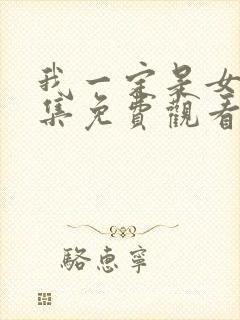 我一定是女
集免費觀看
駱惠寧